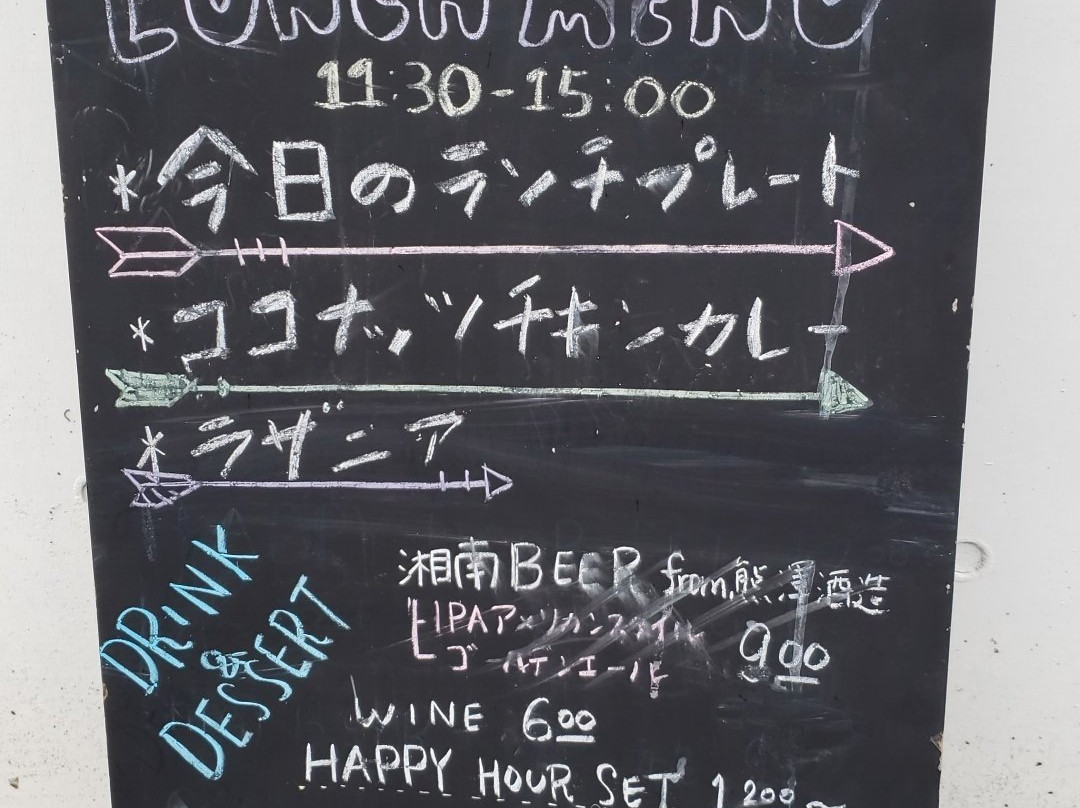 LUNCH MENU
11:30-15:00
*今日のランチプレート
*ココナッツチキンカレー
*ラザニア
DRINK & DESSERT
湘南BEER from.熊澤酒造
IPAアメリカンスタイル
ゴールデンエール
900
WINE 600
HAPPY HOUR SET 1200~